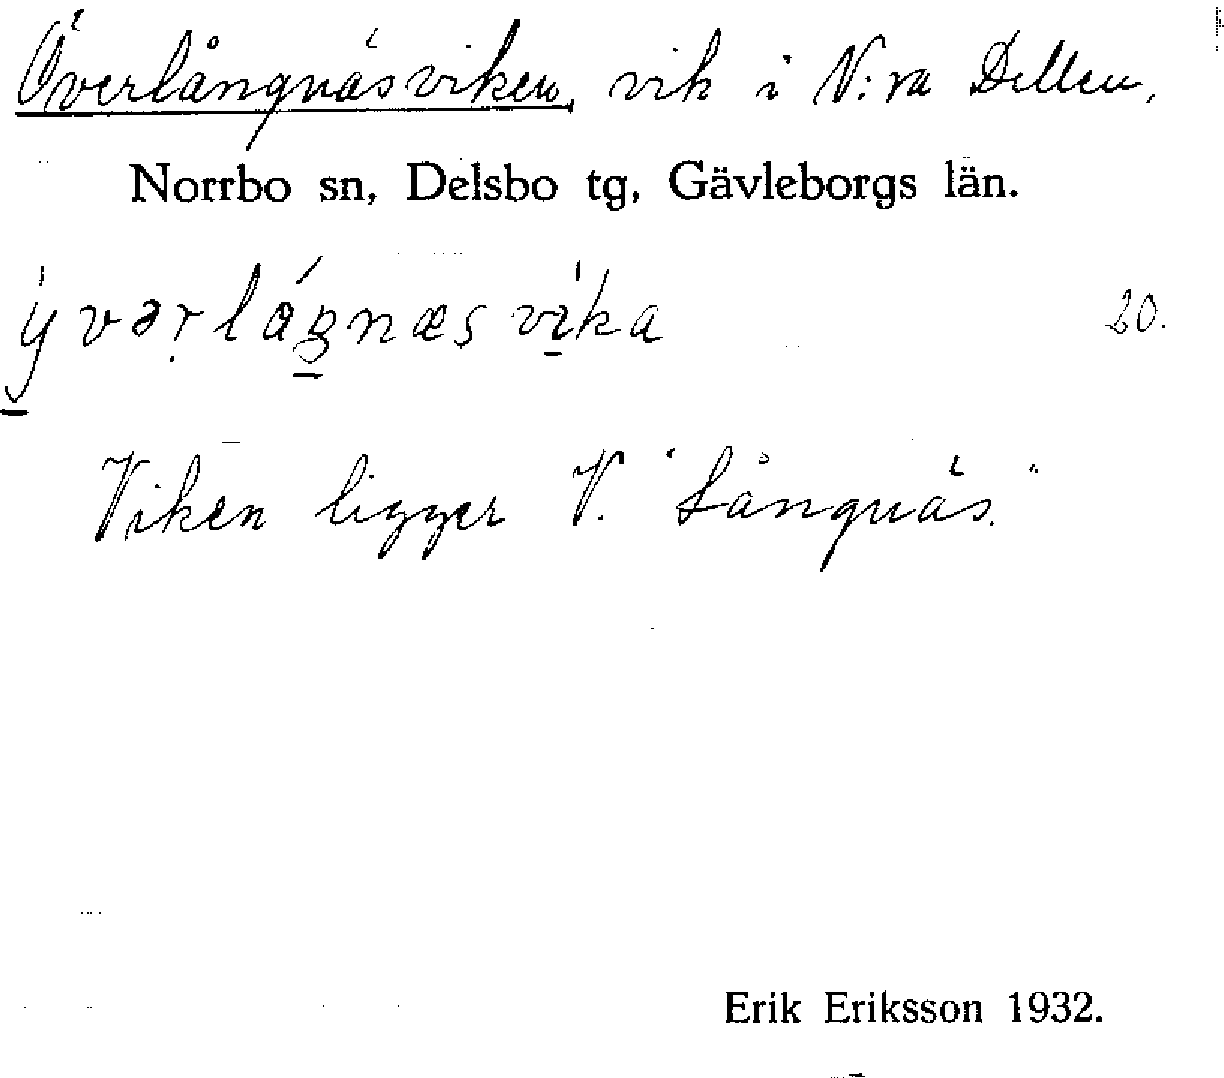 Överlångnäsviken, vik i N:ra Dellen,
Norrbo sn, Delsbo tg, Gävleborgs län.
20.
Viken ligger V. "Långnäs."
Erik Eriksson 1932.